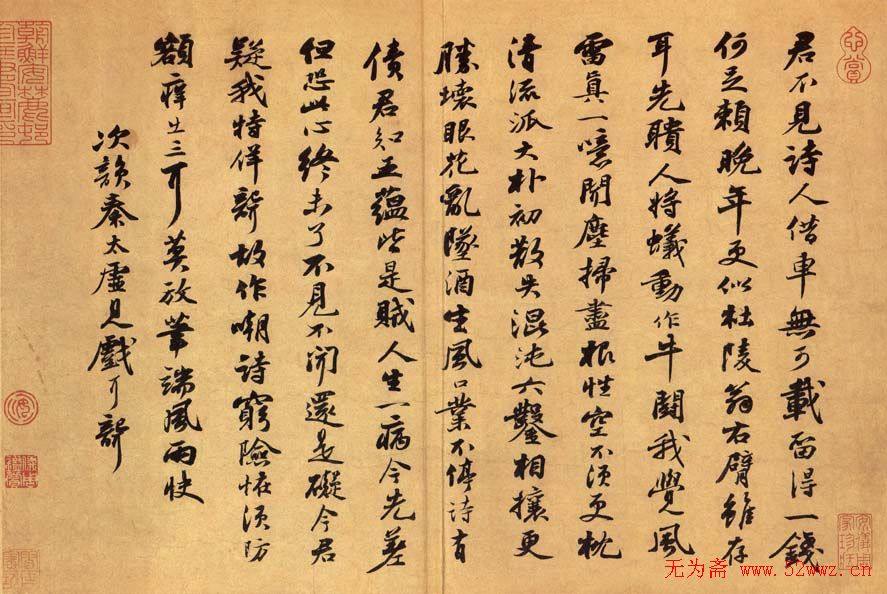 君不見詩人借車無可載留得一錢
何足賴晚年更似杜陵翁右臂雖存
耳先聵人將蟻動作牛鬭我覺風
雷真一噫聞塵掃盡根性空不須更枕
清流派大朴初散失混沌六鑿相攘更
勝壞眼花亂墜酒生風口業不停詩有
債君知五蘊皆是賊人生一病今先差
但恐此心終未了不見不聞還是礙今君
疑我特佯聾故作嘲詩窮險怪須防
額癢出三耳莫放筆端風雨快
次韻秦太虛見戲耳聾
无为斋 www.52wwz.cn